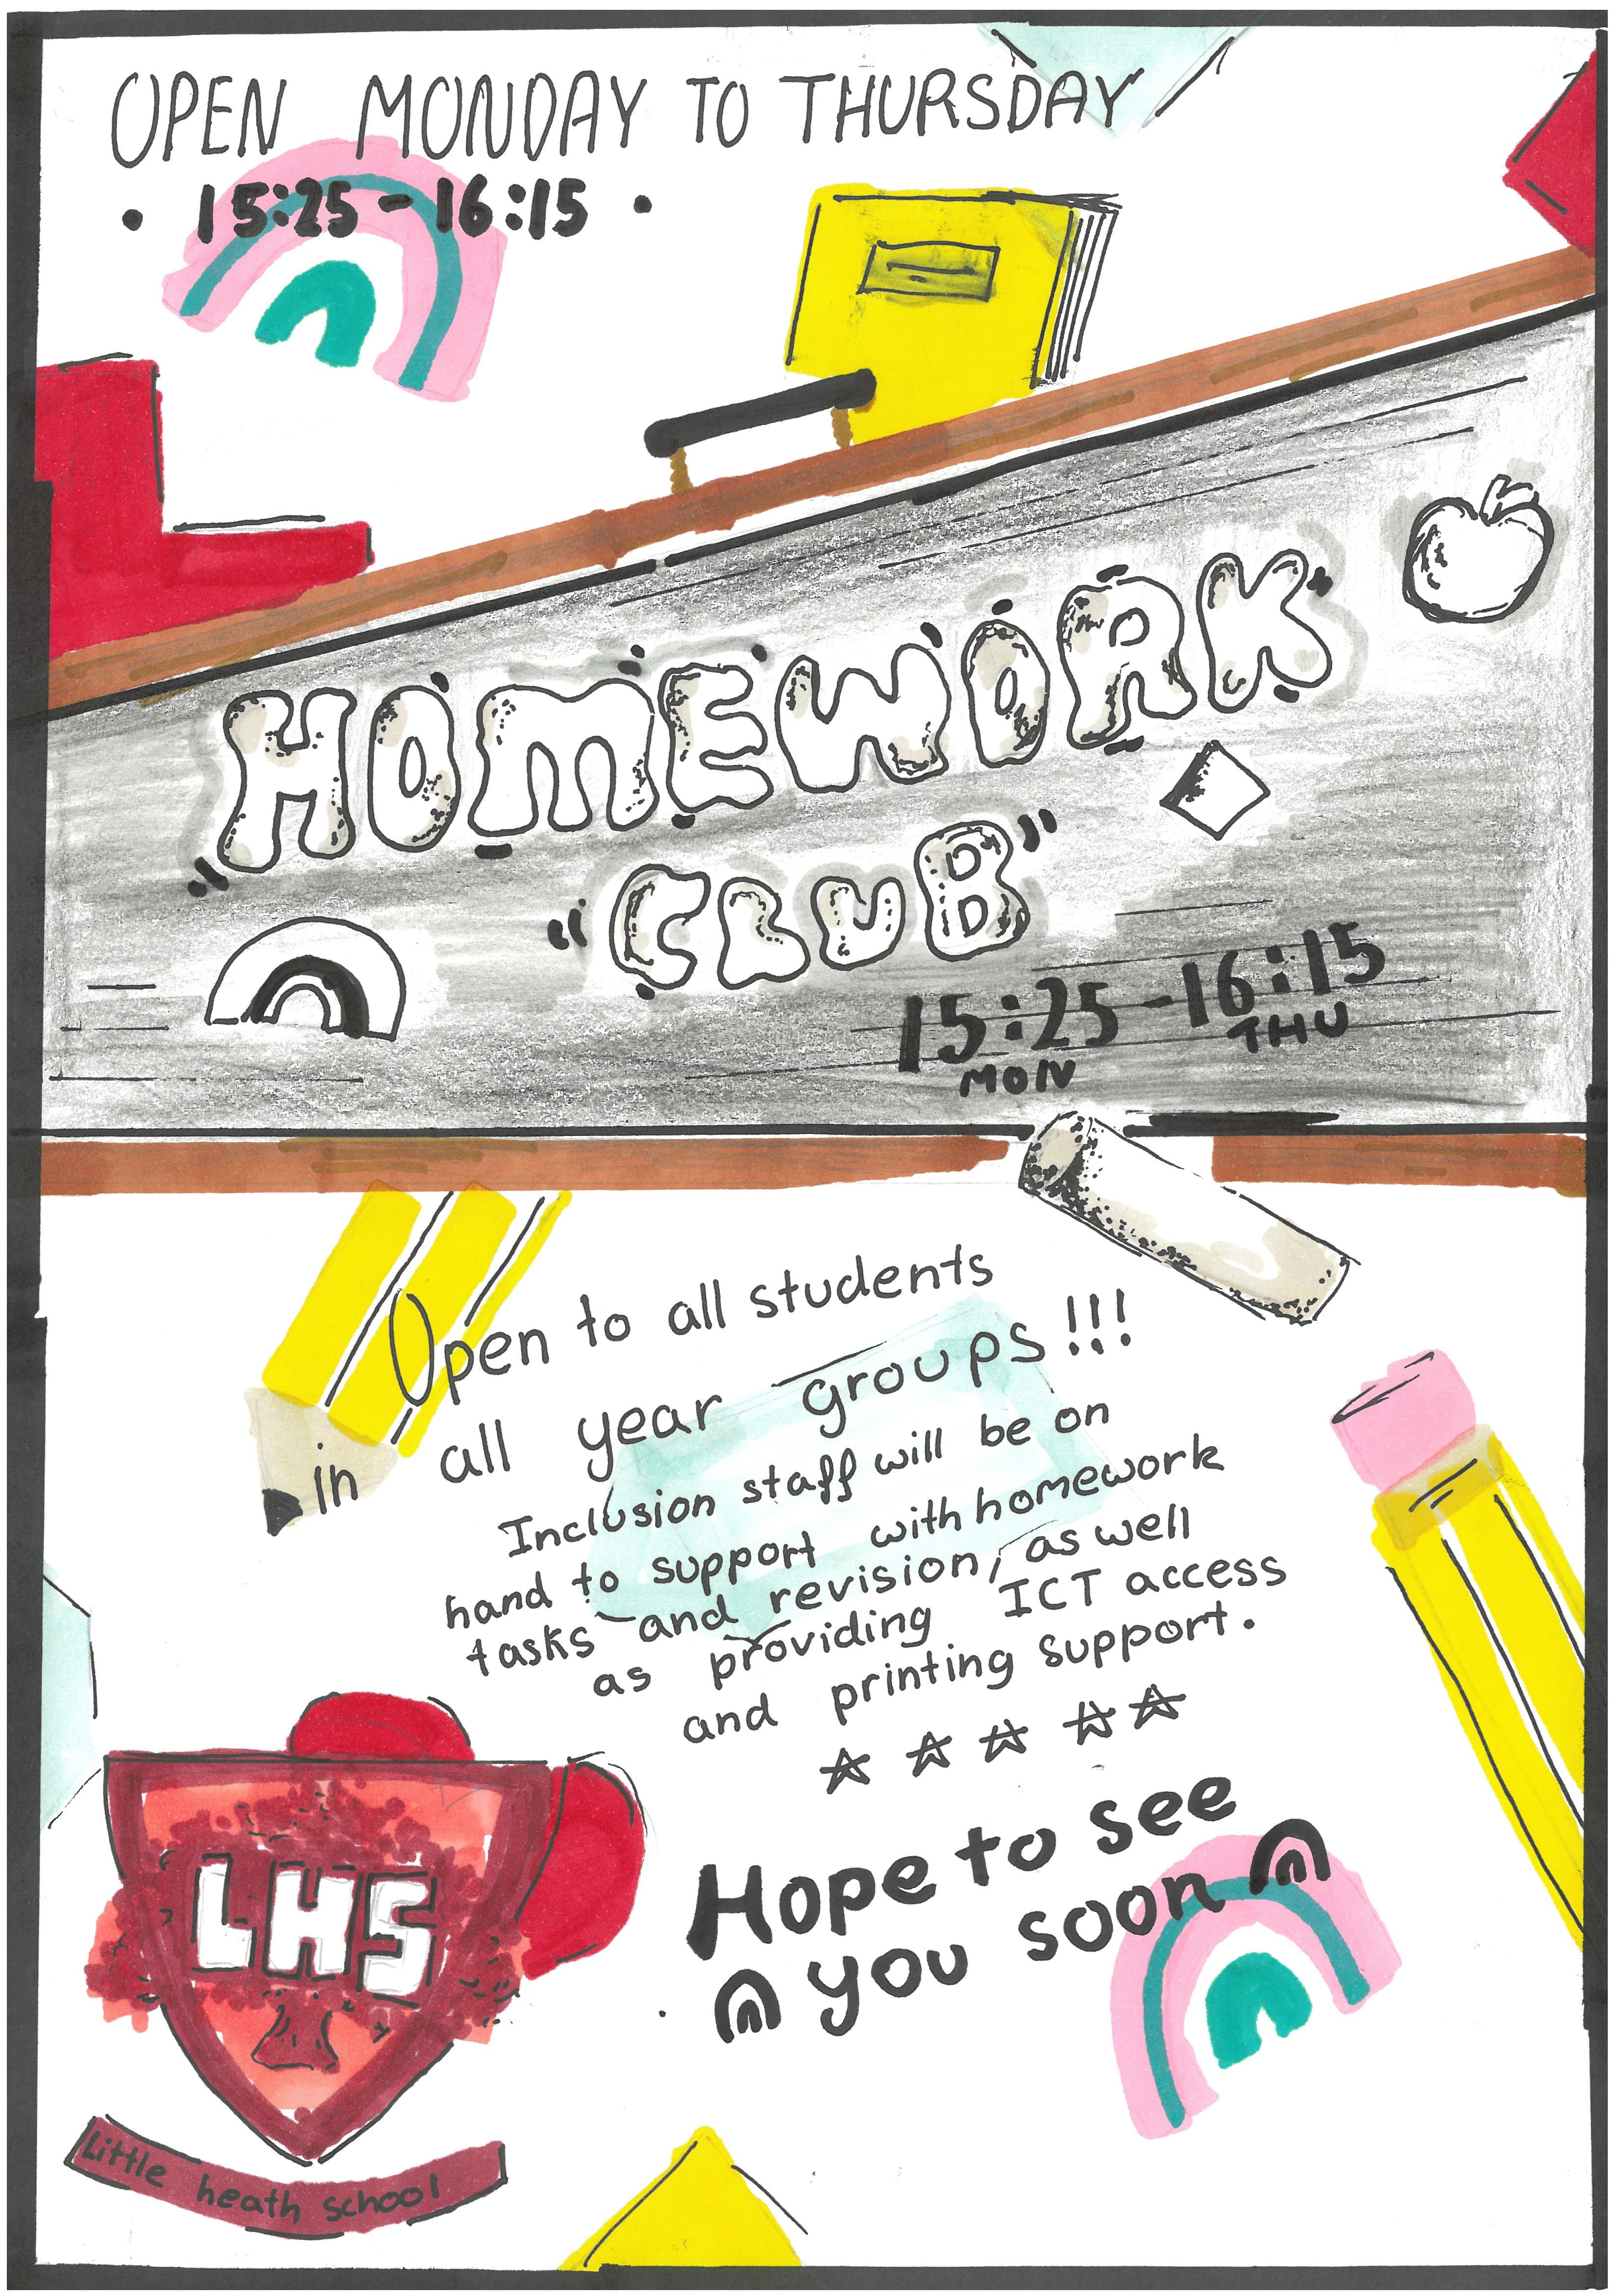 OPEN MONDAY TO THURSDAY
• 15:25 - 16:15 •
HOMEWORK
CLUB
15:25 - 16:15
MON THU
Open to all students
in all year groups!!!
Inclusion staff will be on
hand to support with homework
tasks and revision, as well
as providing ICT access
and printing support.
Hope to see
you soon
LHS
Little heath school